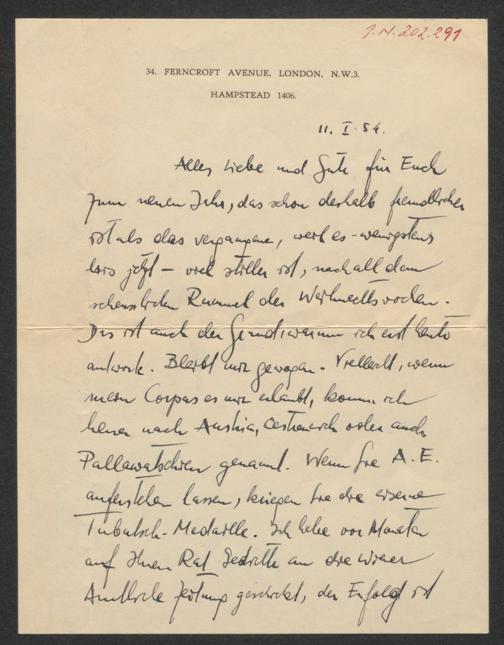 J.N. 202.291
34, FERNCROFT AVENUE, LONDON, N.W.3.
HAMPSTEAD 1406.
11. I. 54.
Alles Liebe und Gute für Euch
zum neuen Jahr, das schon deshalb freundlicher
ist als das vergangene, weil es - wenigstens
bis jetzt - viel stiller ist, nach all dem
scheusslichen Rummel der Weihnachtswochen.
Das ist auch der Grund warum ich erst heute
antworte. Bleibt mir gewogen. Vielleicht, wenn
mein Corpus es mir erlaubt, komm ich
heuer nach Austria, Oesterreich oder auch
Pallawatschien genannt. Wenn Sie A. E.
auferstehen lassen, kriegen Sie die eiserne
Tubutsch-Medaille. Ich habe vor Monaten
auf Ihren Rat Gedichte an die Wiener
Amtliche Zeitung geschickt, der Erfolg ist